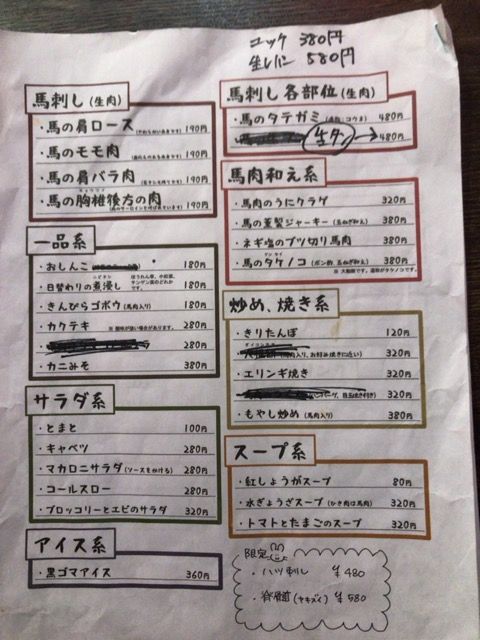 ユッケ 380円
生レバー 580円
馬刺し(生肉)
・馬の肩ロース 190円
・馬のモモ肉 190円
・馬の肩バラ肉 190円
・馬の胸椎後方の肉 190円
一品系
・おしんこ 180円
・日替わりの煮浸し ほうれん草、小松菜、チンゲン菜のどれかです。 180円
・きんぴらゴボウ(馬肉入り) 180円
・カクテキ ※酸味が強い場合があります。 280円
320円
・カニみそ 380円
サラダ系
・とまと 100円
・キャベツ 280円
・マカロニサラダ(ソースをかける) 280円
・コールスロー 280円
・ブロッコリーとエビのサラダ 320円
アイス系
・黒ゴマアイス 360円
馬刺し各部位(生肉)
・馬のタテガミ 480円
生タン→480円
馬肉和え系
・馬肉のうにクラゲ 320円
・馬の薫製ジャーキー(玉ねぎ和え) 380円
・ネギ塩のブツ切り馬肉 380円
・馬のタケノコ(ポン酢 玉ねぎ和え) 380円
※大動脈です。通称がタケノコです。
炒め、焼き系
・きりたんぽ 120円
肉入り、お好み焼きに近い) 320円
・エリンギ焼き 320円
ンバーグ、目玉焼き付き) 320円
・もやし炒め(馬肉入り) 380円
スープ系
・紅しょうがスープ 80円
・水ぎょうざスープ(ひき肉は馬肉) 320円
・トマトとたまごのスープ 320円
限定
・ハツ刺し ¥480
・脊髄(セキズイ) ¥580